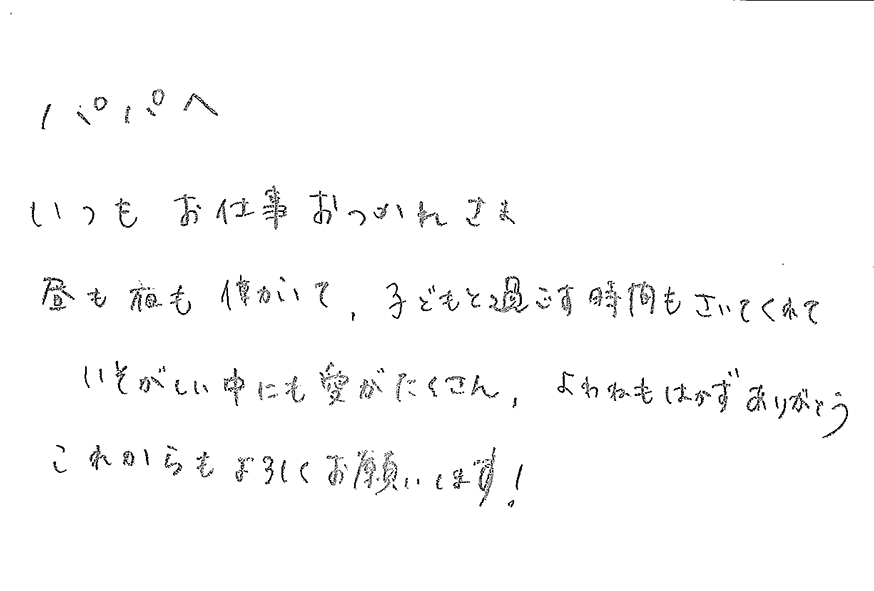 パパへ
いつも お仕事 おつかれさま
昼も夜も 働いて、子どもと過ごす時間もさいてくれて
いそがしい中にも愛がたくさん、よわねもはかずありがとう
これからもよろしくお願いします!